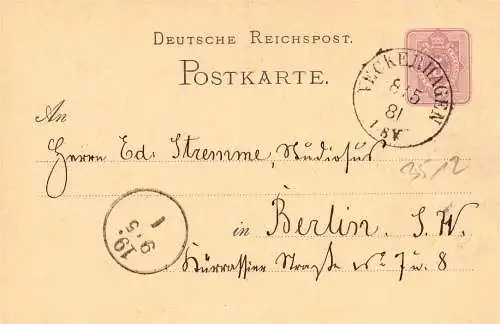 DEUTSCHE REICHSPOST.
POSTKARTE.
VECKERHAGEN
8 5
81
An
Herrn Ed. Stremme, Studiosus
in Berlin. S. W.
Kürrassier Straße No 7 u. 8
19.
9/5
1